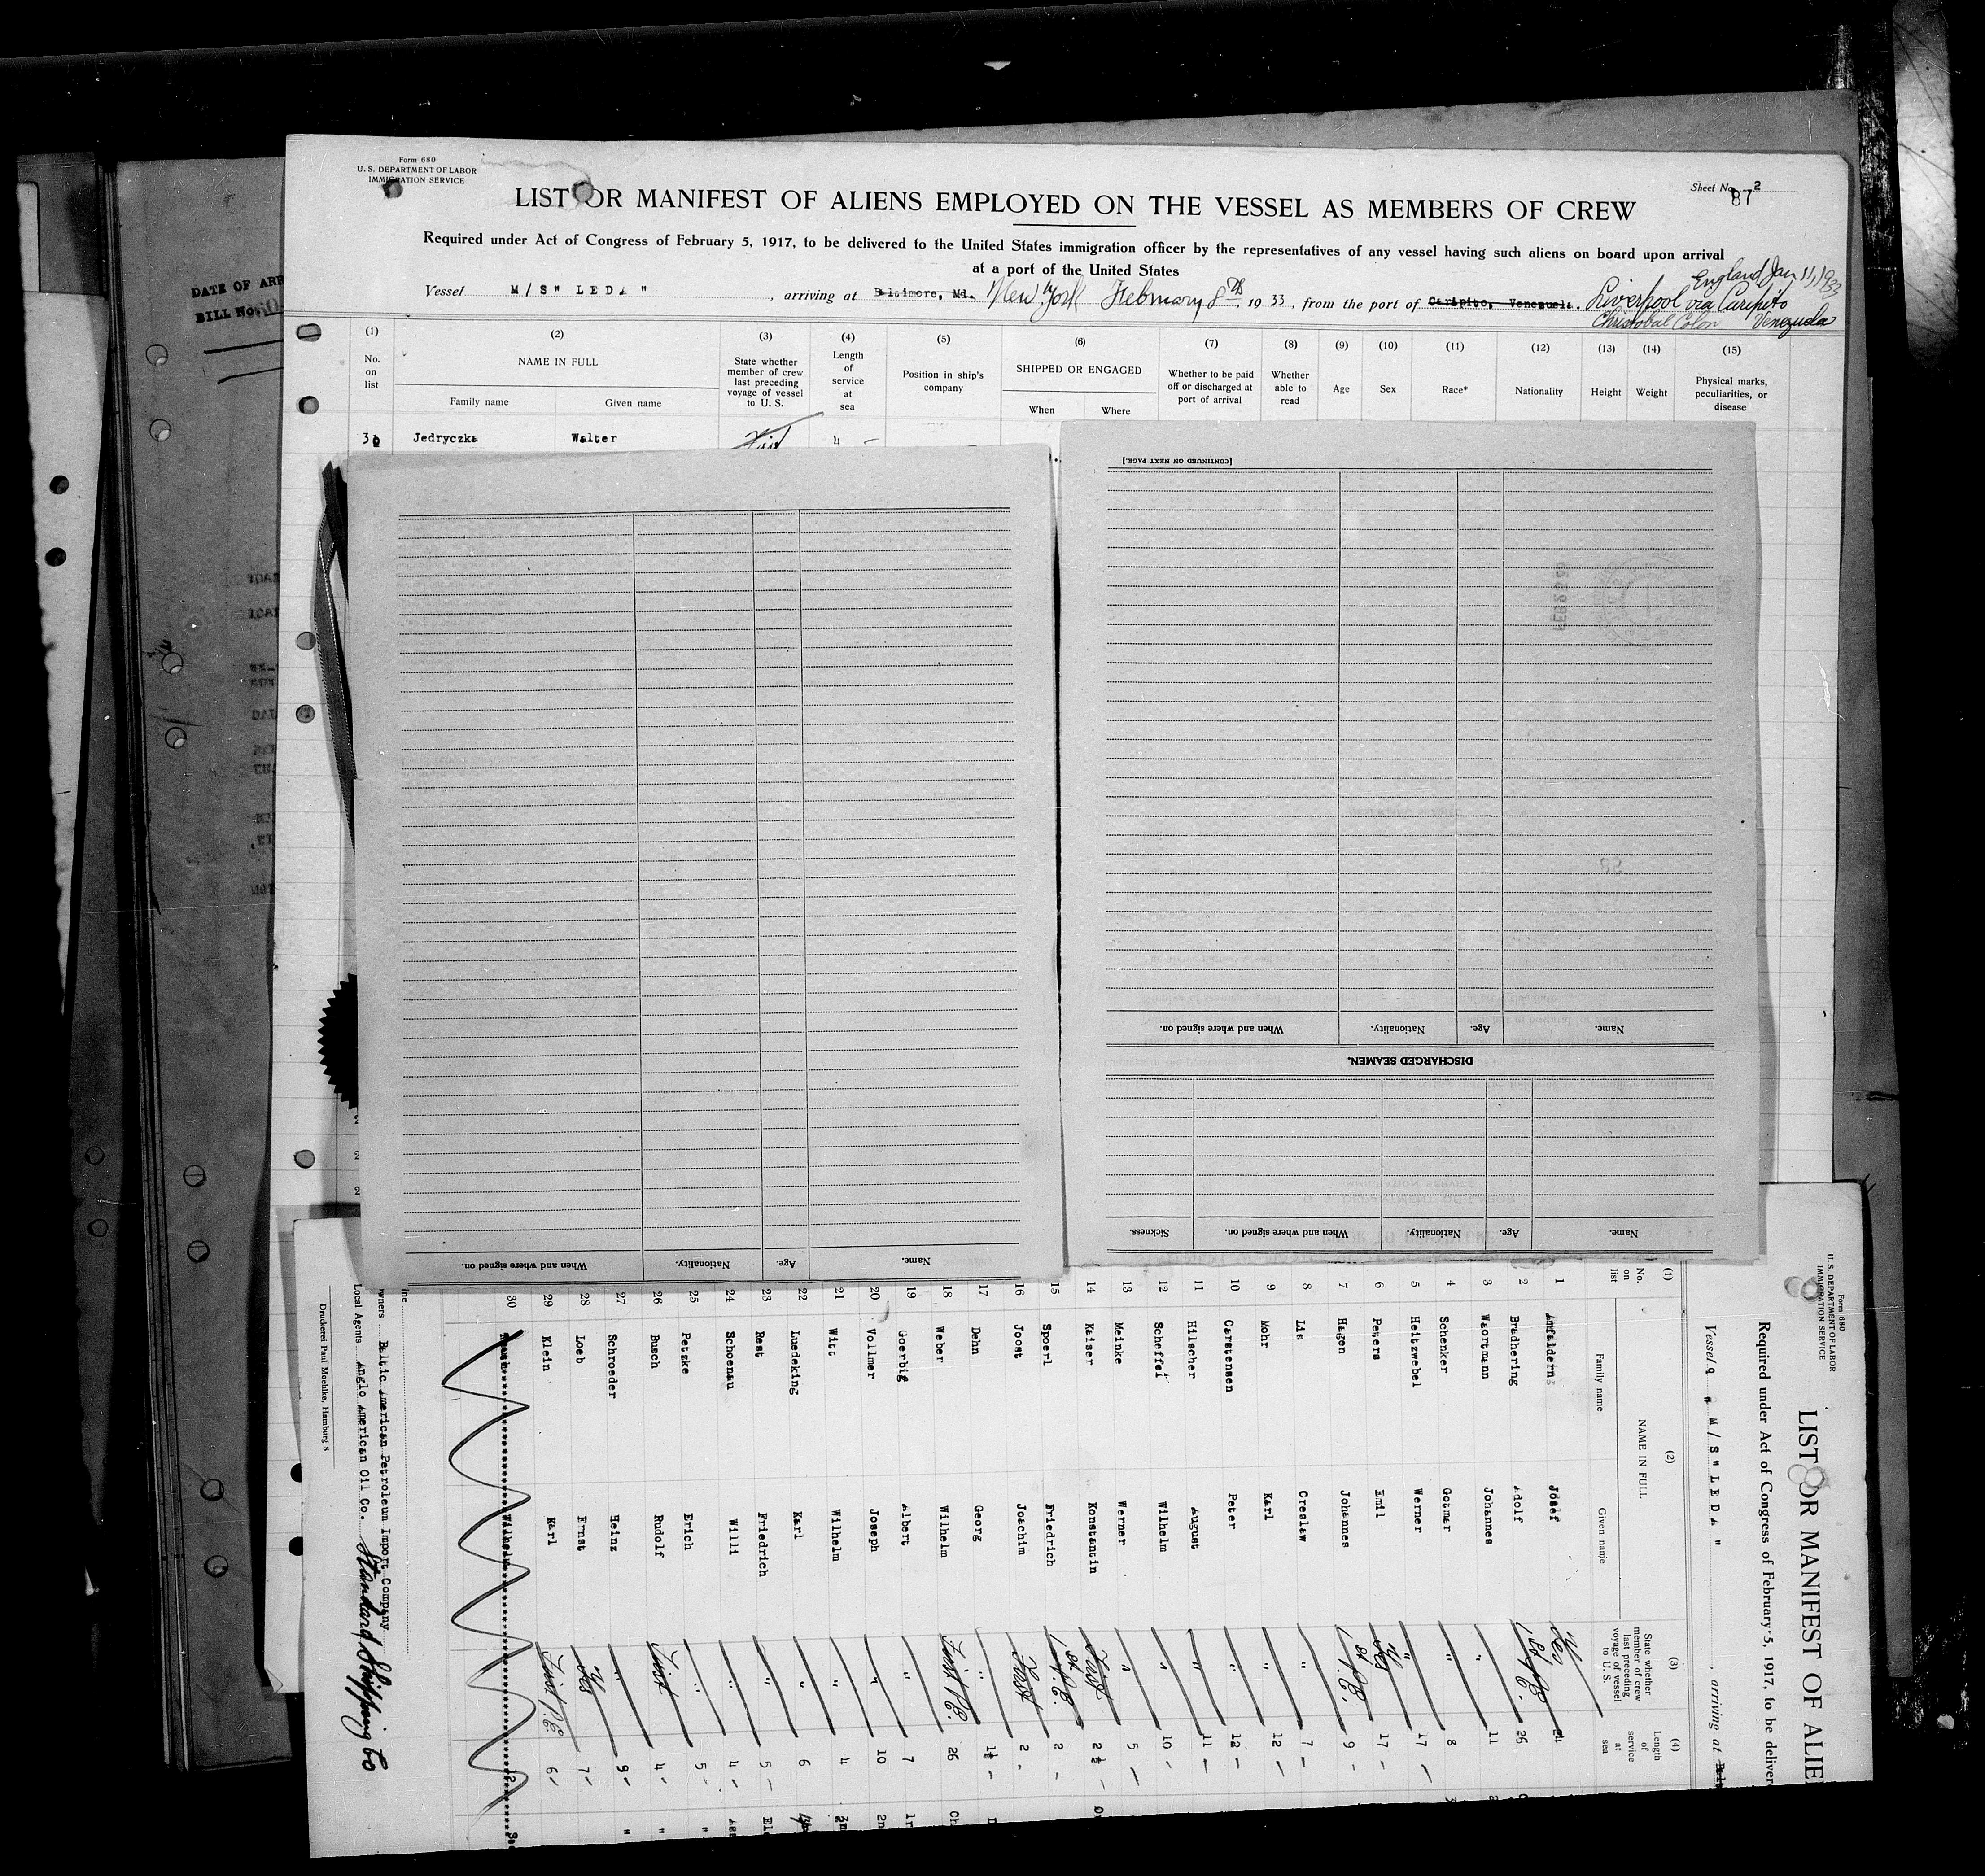 Form 680
U. S. DEPARTMENT OF LABOR
IMMIGRATION SERVICE
Sheet No. 2
87
LIST OR MANIFEST OF ALIENS EMPLOYED ON THE VESSEL AS MEMBERS OF CREW
Required under Act of Congress of February 5, 1917, to be delivered to the United States immigration officer by the representatives of any vessel having such aliens on board upon arrival
at a port of the United States
England Jan 11, 1933
Vessel M/S " LEDA ", arriving at Baltimore, Md. New York February 8th, 1933, from the port of Caripito, Venezuela. Liverpool via Caripito
Christobal Colon Venezuela
(1) (2) (3) (4) (5) (6) (7) (8) (9) (10) (11) (12) (13) (14) (15)
No. on list
NAME IN FULL
Family name Given name
State whether member of crew last preceding voyage of vessel to U. S.
Length of service at sea
Position in ship's company
SHIPPED OR ENGAGED
When Where
Whether to be paid off or discharged at port of arrival
Whether able to read
Age
Sex
Race*
Nationality
Height
Weight
Physical marks, peculiarities, or disease
Jedryczka Walter First 4 -
DATE OF ARR
BILL No.
[CONTINUED ON NEXT PAGE.]
When and where signed on. Nationality. Age. Name.
DISCHARGED SEAMEN.
Sickness. When and where signed on. Nationality. Age. Name.
When and where signed on. Nationality. Age. Name.
Form 680
U. S. DEPARTMENT OF LABOR
IMMIGRATION SERVICE
LIST OR MANIFEST OF ALIE
Required under Act of Congress of February 5, 1917, to be deliver
Vessel " M/S " LEDA ", arriving at
(1) (2) (3) (4)
No. on list
NAME IN FULL
Family name Given name
State whether member of crew last preceding voyage of vessel to U. S.
Length of service at sea
1 Amfaldern Josef Yes 24
2 Bradhering Adolf 1st P.E. 26
3 Waortmann Johannes " 11
4 Schenker Gotmar " 8
5 Heitzwebel Werner " 17 -
6 Peters Emil Yes 17 -
7 Hagen Johannes 1st P.E. 9 -
8 Lis Creslaw " 7 -
9 Mohr Karl " 12 -
10 Carstensen Peter " 12 -
11 Hilscher August " 11 -
12 Scheffel Wilhelm " 10 -
13 Meinke Werner " 5 -
14 Kaiser Konstantin First 2½ -
15 Spoerl Friedrich 1st P.E. 2 -
16 Joost Joachim First 2 -
17 Dehn Georg " 1½ -
18 Weber Wilhelm First P.E. 26
19 Goerbig Albert " 7
20 Vollmer Joseph " 10
21 Witt Wilhelm " 4
22 Luedeking Karl " 6
23 Best Friedrich " 5 -
24 Schoenau Willi " 4 -
25 Petzke Erich " 5 -
26 Busch Rudolf First 4 -
27 Schroeder Heinz " 9 -
28 Loeb Ernst Yes 7 -
29 Klein Karl First P.E. 6 -
30 Wilhelm 12
ine
wners Baltic American Petroleum Import Company
Local Agents Anglo American Oil Co. Standard Shipping Co
Druckerei Paul Moehlke, Hamburg 8